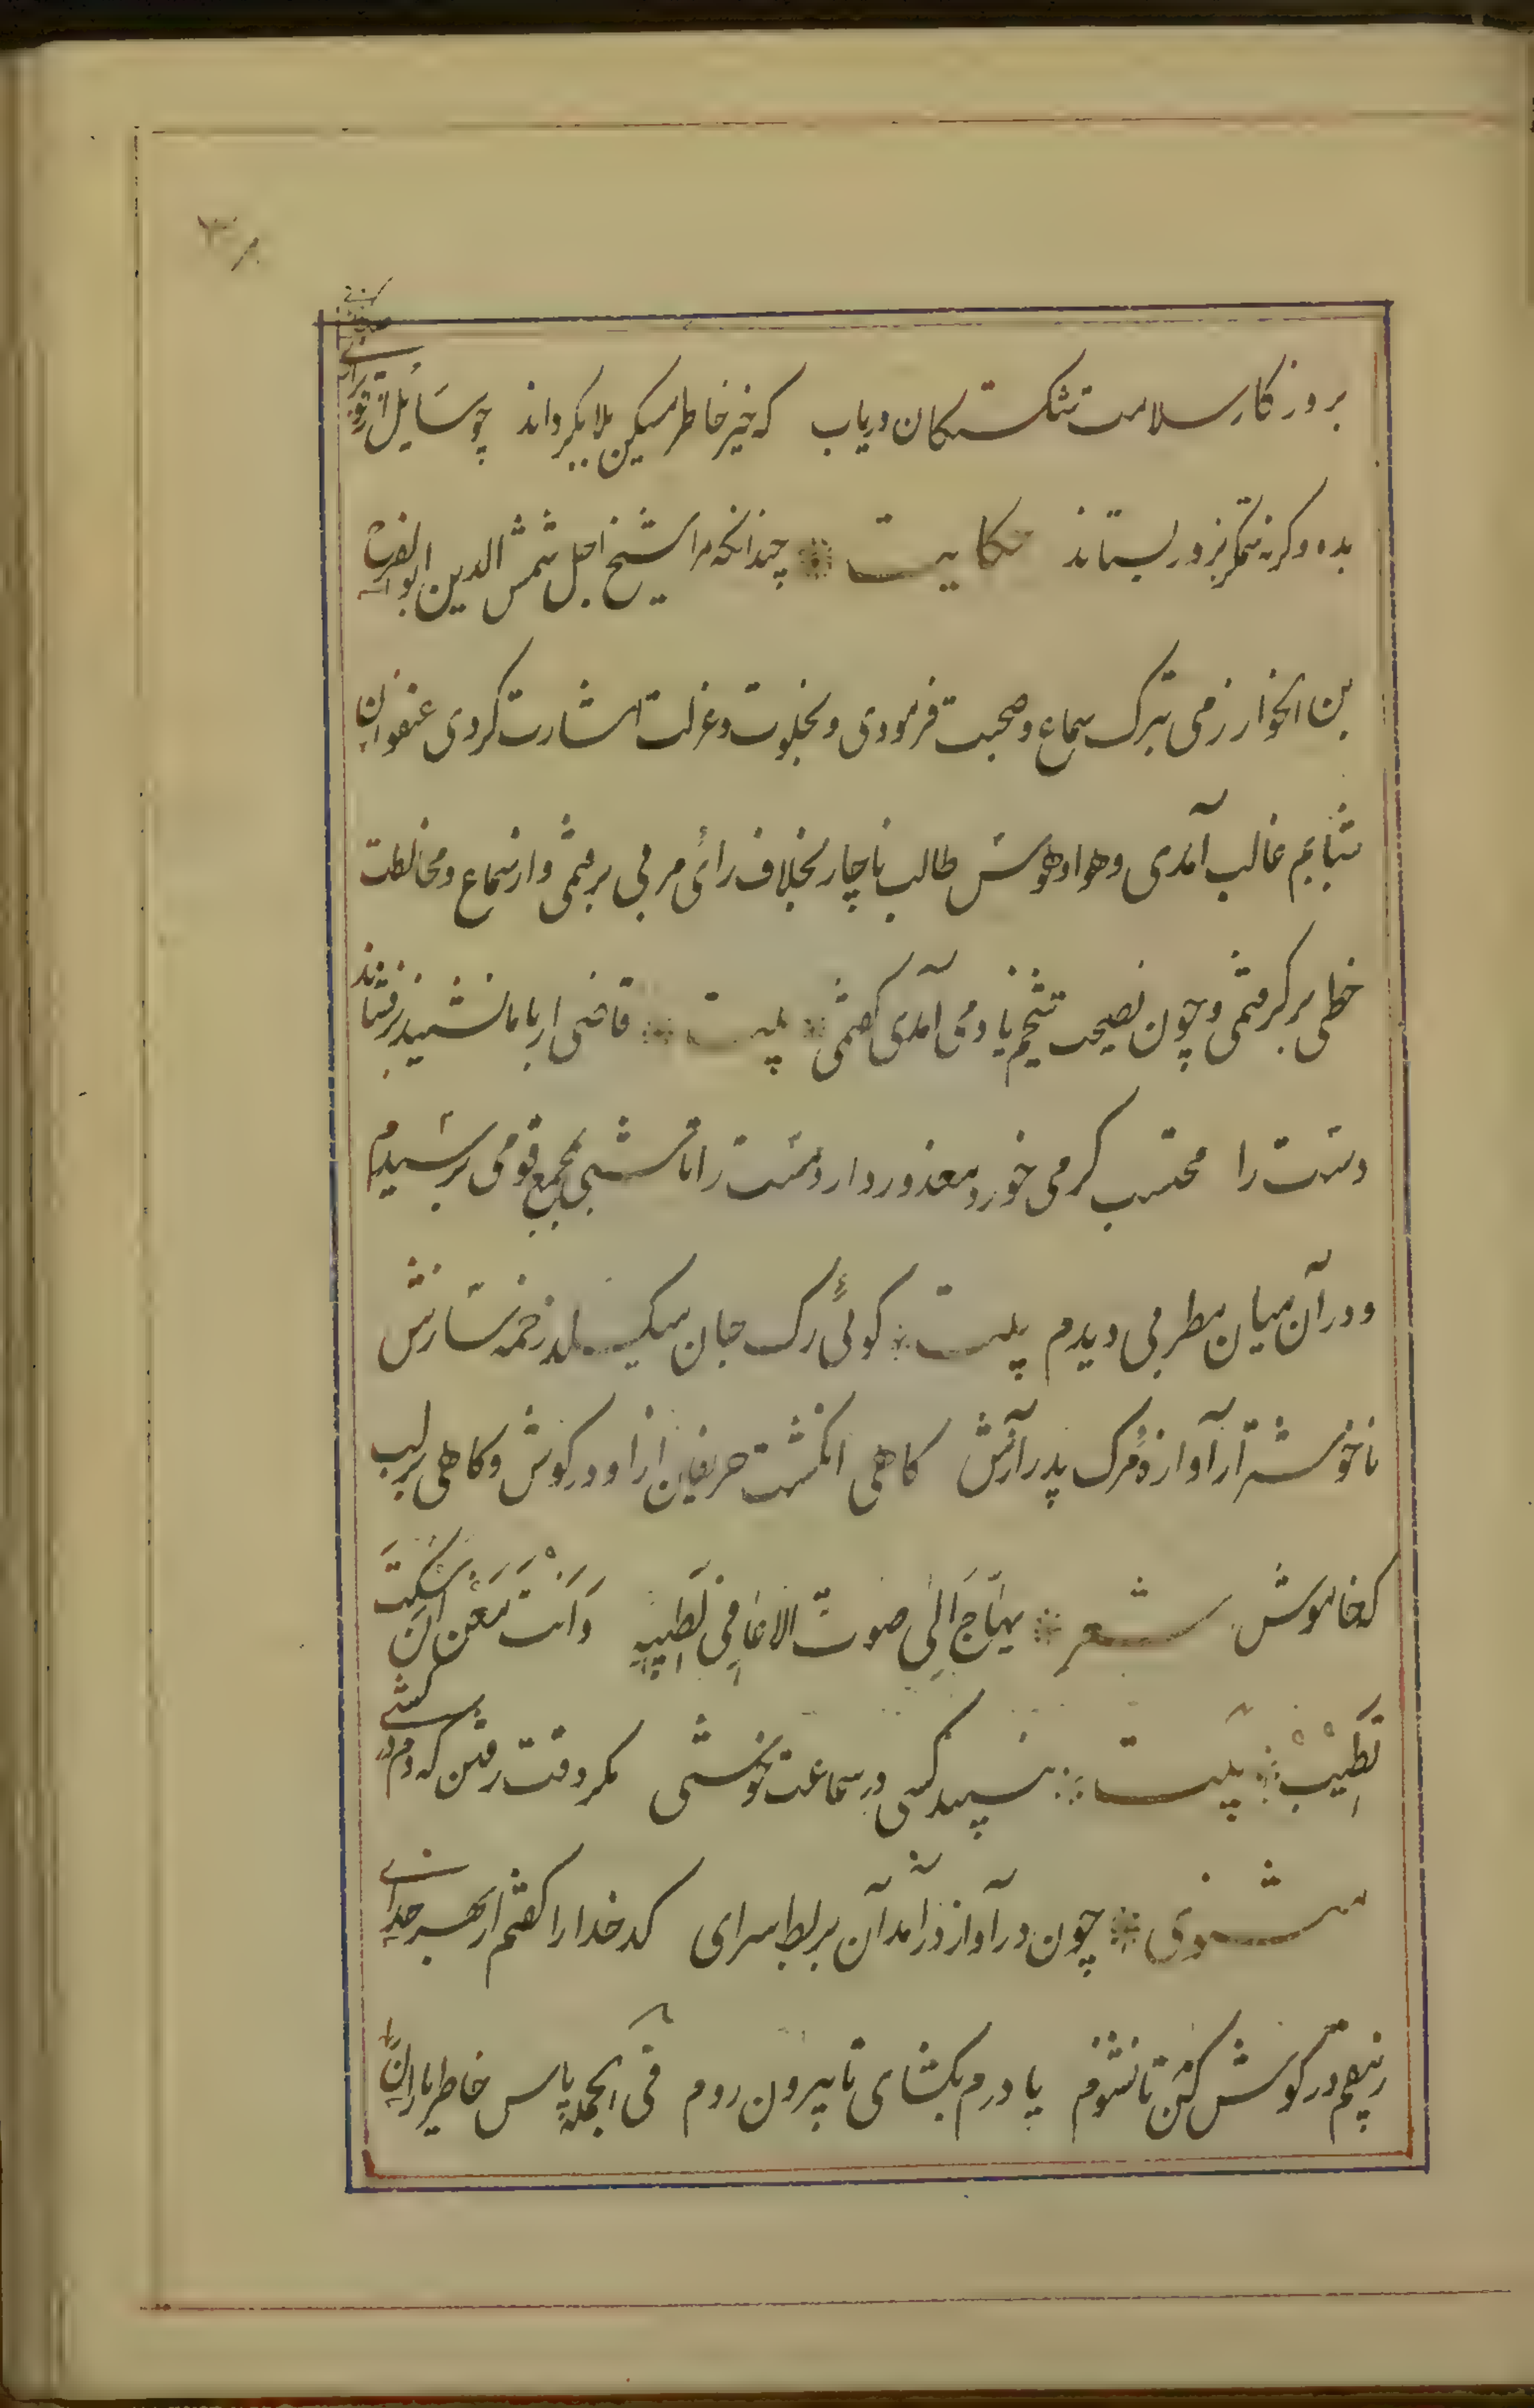 بروزکار سلامت شکستکان دریاب که خیر خاطر مسکین بلا بکرداند چو سایل از تو بزاری
بده وکرنه ستمکر بزور بستاند حکایت چندانکه مرا شیخ اجل شمس الدین ابوالفرج
بن الخوارزمی بترک سماع و صحبت فرمودی و بخلوت و عزلت اشارت کردی عنفوان
شبابم غالب آمدی و هوا و هوس طالب ناچار بخلاف رائ مربی برفتمی و از سماع و مخالطت
حظی برکرفتمی و چون نصیحت شیخم یاد می آمدی کفتمی بیت قاضی ار با ما نشیند برفشاند
دست را محتسب کر می خورد معذور دارد مست را تا شبی بمجمع قومی برسیدم
و در آن میان مطربی دیدم بیت کوئی رک جان میکسلد زخمه سازش
ناخوشتر از آوازه مرک پدر آوازش کاهی انکشت حریفان ازو در کوش و کاهی بر لب
که خاموش شعر یهتاج الی صوت الاغانی لطیبه وانت مغن ان سکت
تطیب بیت نبیند کسی در سماعت خوشی مکر وقت رفتن که دم درکشی
مثنوی چون در آواز درآمد آن بربط سرای کدخدا را کفتم از بهر خدای
زیبقم در کوش کن تا نشنوم یا درم بکشای تا بیرون روم فی الجمله پاس خاطر یاران را